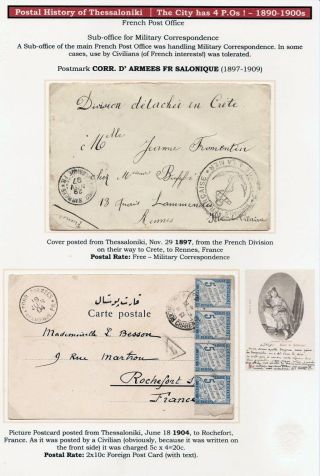 Postal History of Thessaloniki | The City has 4 P.Os ! – 1890-1900s
French Post Office
Sub-office for Military Correspondence
A Sub-office of the main French Post Office was handling Military Correspondence. In some
cases, use by Civilians (of French interests!) was tolerated.
Postmark CORR. D' ARMEES FR SALONIQUE (1897-1909)
Division détachée en Crète
à Mlle Jeanne Fromentin
chez Mr
13 Quai Lammenais
Rennes
Cover posted from Thessaloniki, Nov. 29 1897, from the French Division
on their way to Crete, to Rennes, France
Postal Rate: Free – Military Correspondence
Carte postale
Mademoiselle L. Besson
9 Rue Martrou
Rochefort s
France
T
5
5
5
5
Picture Postcard posted from Thessaloniki, June 18 1904, to Rochefort,
France. As it was posted by a Civilian (obviously, because it was written
on the front side) it was charged 5c x 4=20c.
Postal Rate: 2x10c Foreign Post Card (with text).